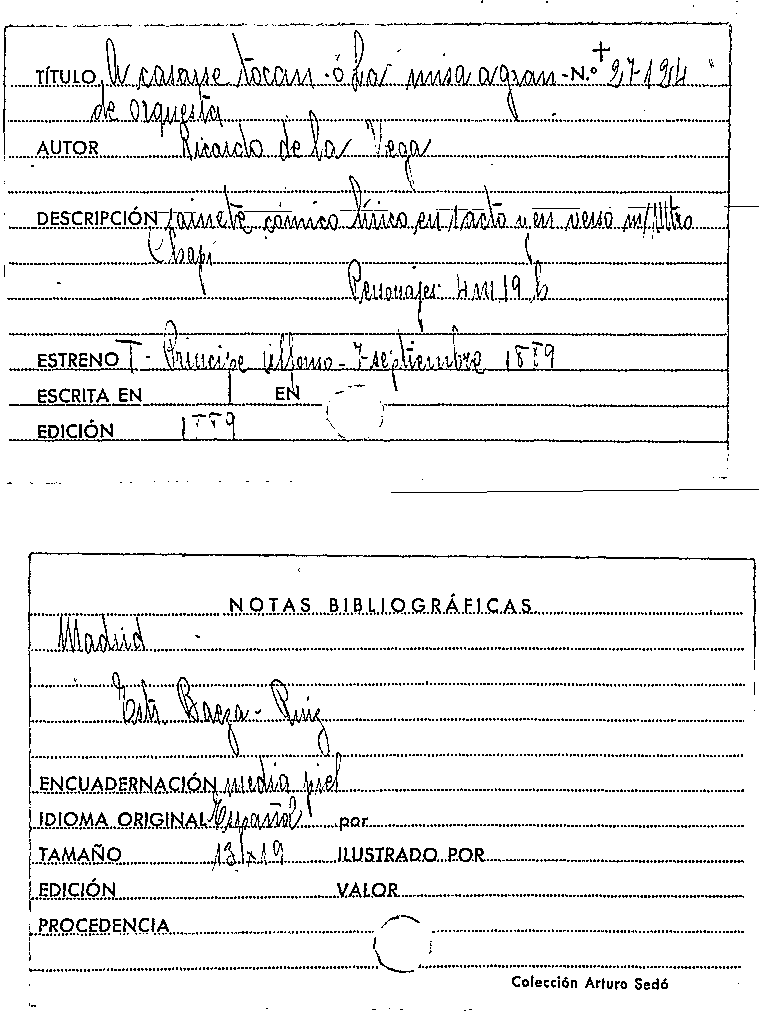 TÍTULO A casarse tocan - ó La misa a gran - N.º 27-124
de orquesta
AUTOR Ricardo de la Vega
DESCRIPCIÓN sainete cómico lírico en 1 acto y en verso m/ Mtro
Chapí
Personajes 4 m 19 h
ESTRENO T - Príncipe Alfonso - 7 septiembre 1889
ESCRITA EN EN
EDICIÓN 1889
NOTAS BIBLIOGRÁFICAS
Madrid
Estr. Baeza - Ruiz
ENCUADERNACIÓN media piel
IDIOMA ORIGINAL Español por
TAMAÑO 13 x 19 ILUSTRADO POR
EDICIÓN VALOR
PROCEDENCIA
Colección Arturo Sedó